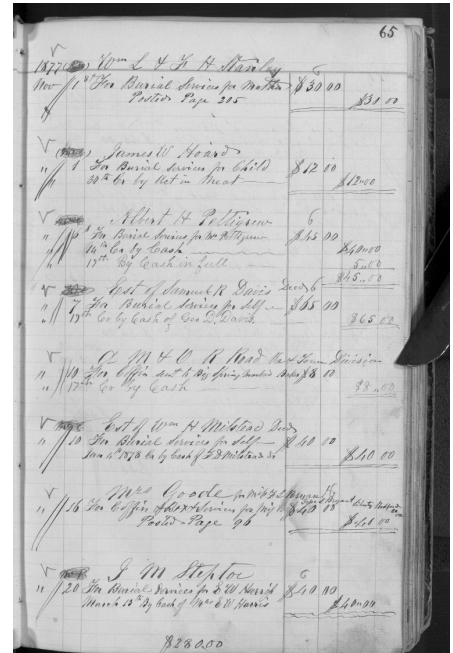 65
1877 Wm L & F H Stanley 6
Nov 1st For Burial Services for Mother $30 00
Posted Page 205 $30 00
James W Hoard
" 1 For Burial Services for Child $12 00
30th Cr by Act in Meat $12 00
Albert H Pettigrew 6
" 5 For Burial Services for Mr Pettigrew $45 00
14th Cr by Cash $40 00
17th By Cash in full 5 00
$45 00
Est of Samuel R Davis Decd 6
" 7 For Burial Services for Self $65 00
17th Cr by Cash of Geo D. Davis. $65 00
A M & O R Road Town Division
" 10 For Coffin sent to Big Spring $8 00
17th Cr by Cash $8 00
Est of Wm H Milstead Decd
" 10 For Burial Services for Self $40 00
Jan 4th 1878 Cr by Cash of Milstead $40 00
Mrs Goode for
" 16 For Coffin & Box & Services for $40 00
Posted Page 96 $40 00
J M Steptoe 6
" 20 For Burial Services for E W Harris $40 00
March 13th By Cash of Mrs E W Harris $40 00
$280.00